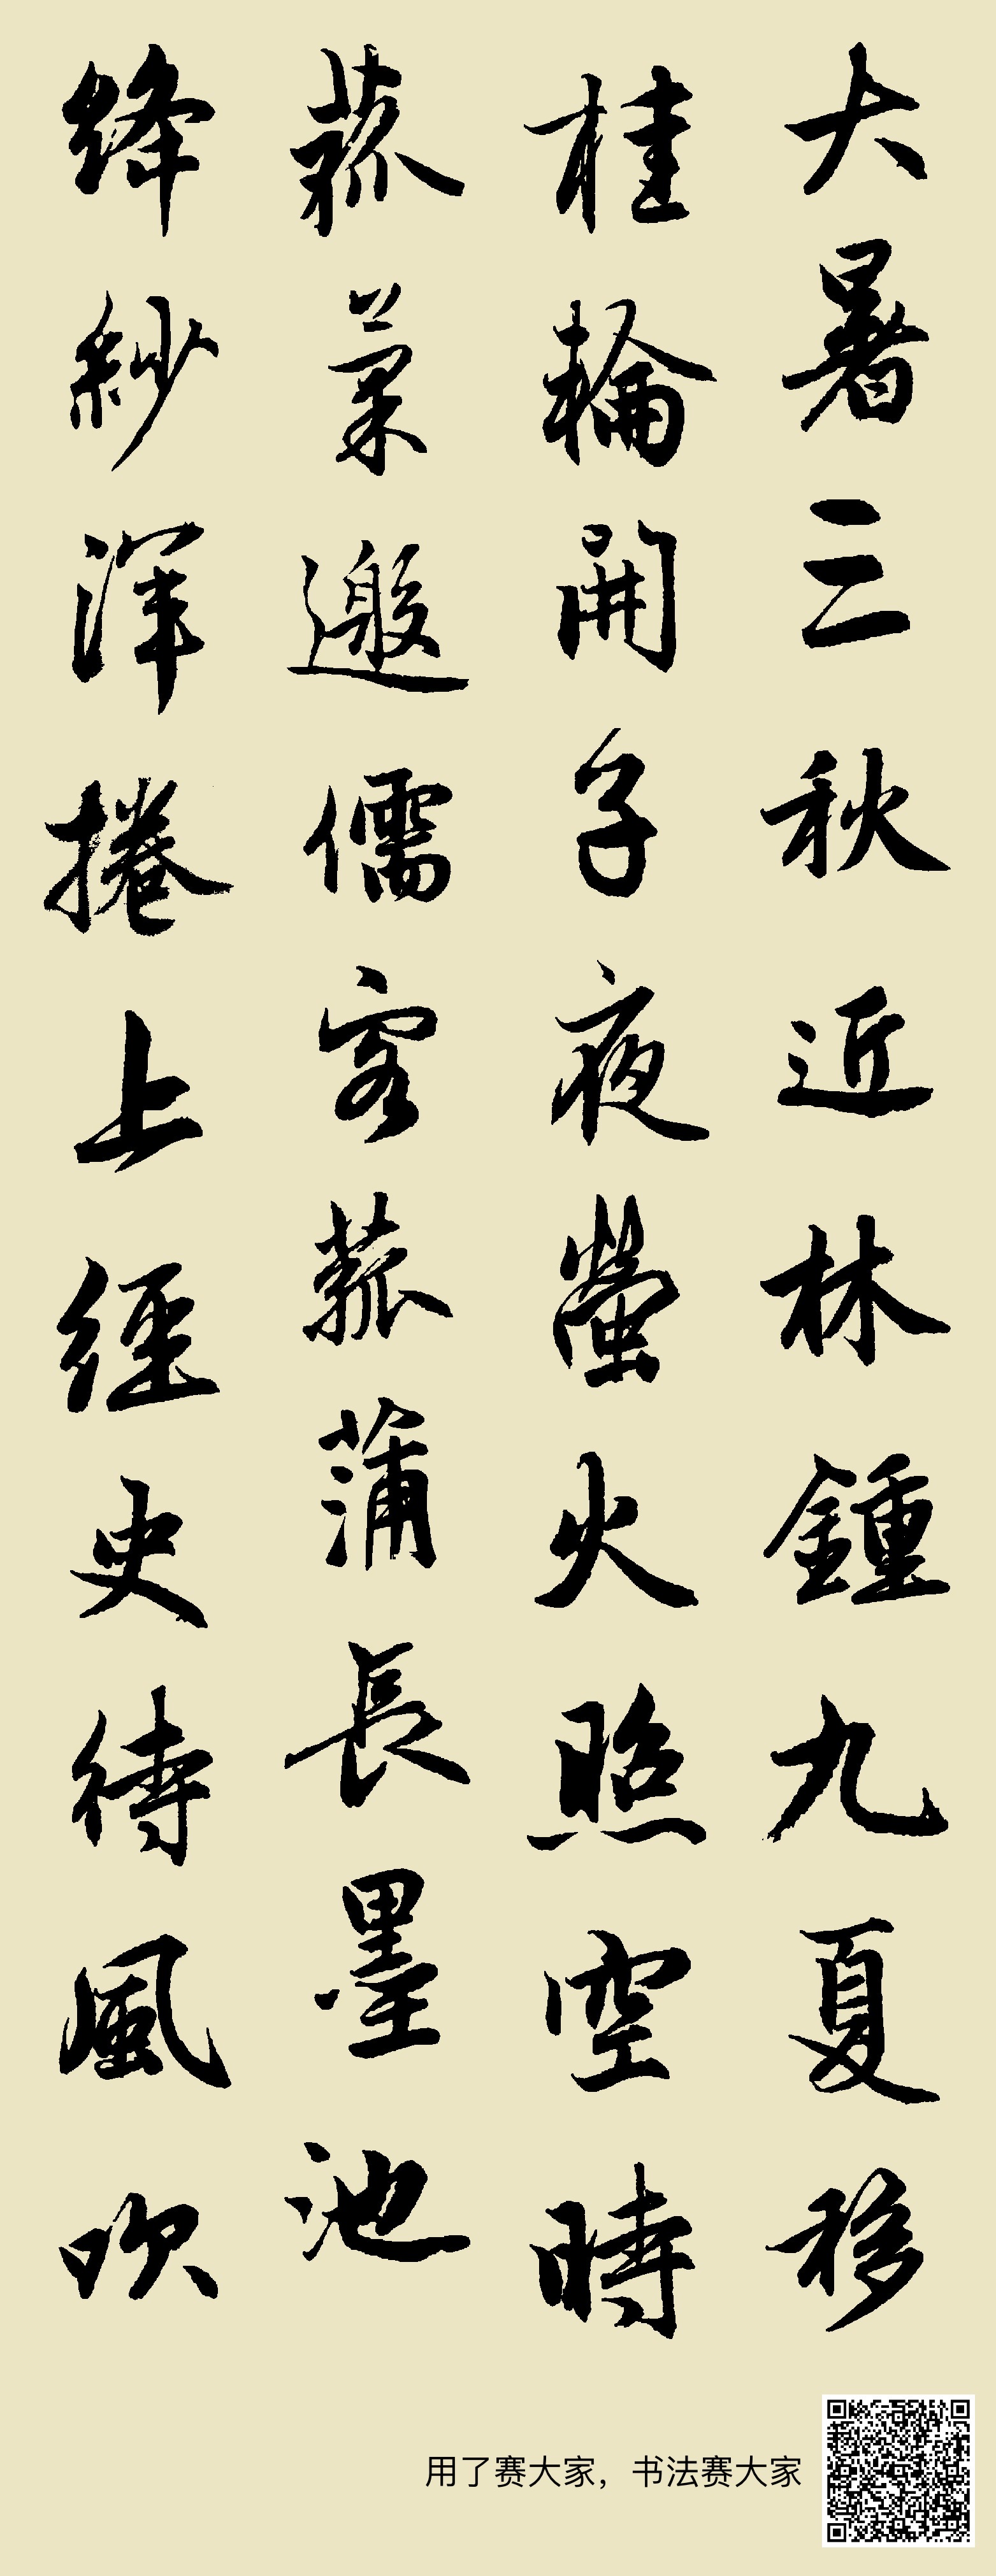 大暑三秋近林鍾九夏移
桂輪開子夜螢火照空時
菰菓邀儒客菰蒲長墨池
絳紗渾捲上經史待風吹
用了赛大家，书法赛大家